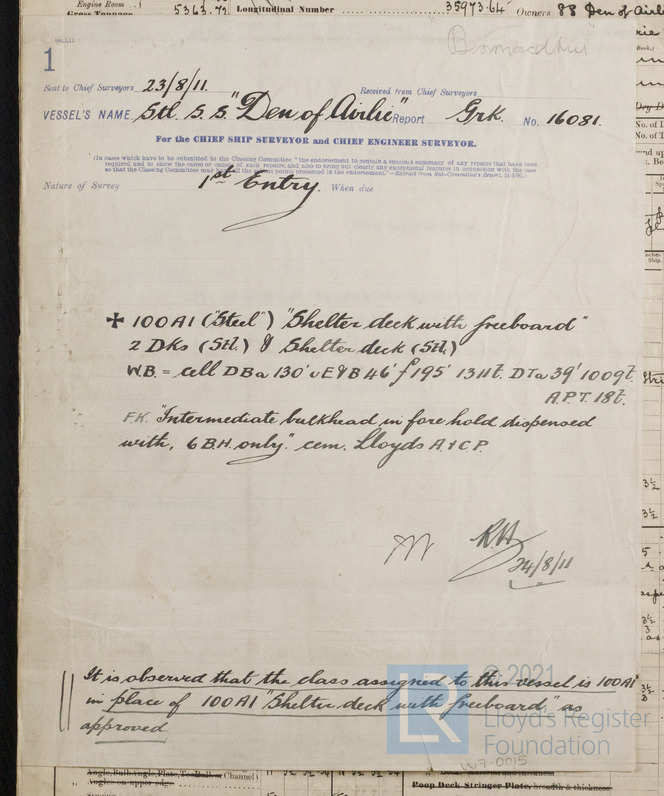 Engine Room
Gross Tonnage 5363.71 Longitudinal Number 35973.64 Owners SS Den of Airlie
1
Sent to Chief Surveyors 23/8/11. Received from Chief Surveyors
VESSEL'S NAME Stl. S.S. "Den of Airlie" Report Grk. No. 16081.
For the CHIEF SHIP SURVEYOR and CHIEF ENGINEER SURVEYOR.
(In cases which have to be submitted to the Classing Committee "the endorsement to contain a succinct summary of any repairs that have been
required and to show the cause or causes of such repairs, and also to bring out clearly any exceptional features in connection with the case
so that the Classing Committee may have all the salient points presented in the endorsement."—Extract from Sub-Committee's Report,
Nature of Survey 1st Entry. When due
✠ 100A1 ("Steel") "Shelter deck with freeboard"
2 Dks (Stl.) & Shelter deck (Stl.)
W.B. = cell DBa 130' uE&B 46' f 195' 1311t. DTa 39' 1009t.
A.P.T. 18t.
F.K. "Intermediate bulkhead in fore hold dispensed
with, 6 B.H. only." cem. Lloyds A.&C.P.
R.H.
24/8/11
It is observed that the class assigned to this vessel is 100A1
in place of 100A1 "Shelter deck with freeboard," as
approved.
© 2021
LR Lloyd's Register
Foundation
W7-0015
Angle, Bulb Angle, Plate, Tee Bulb or Channel
Angles on upper edge
Poop Deck Stringer Plate, breadth & thickness